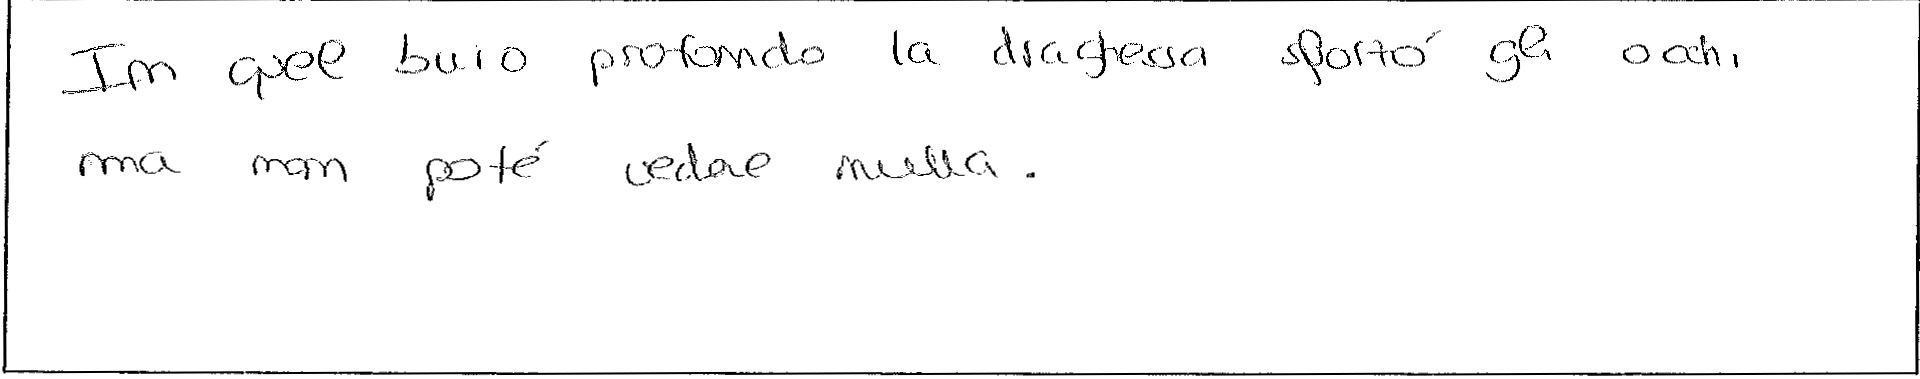 In quel buio profondo la draghessa spostò gli occhi
ma non poté vedere nulla.